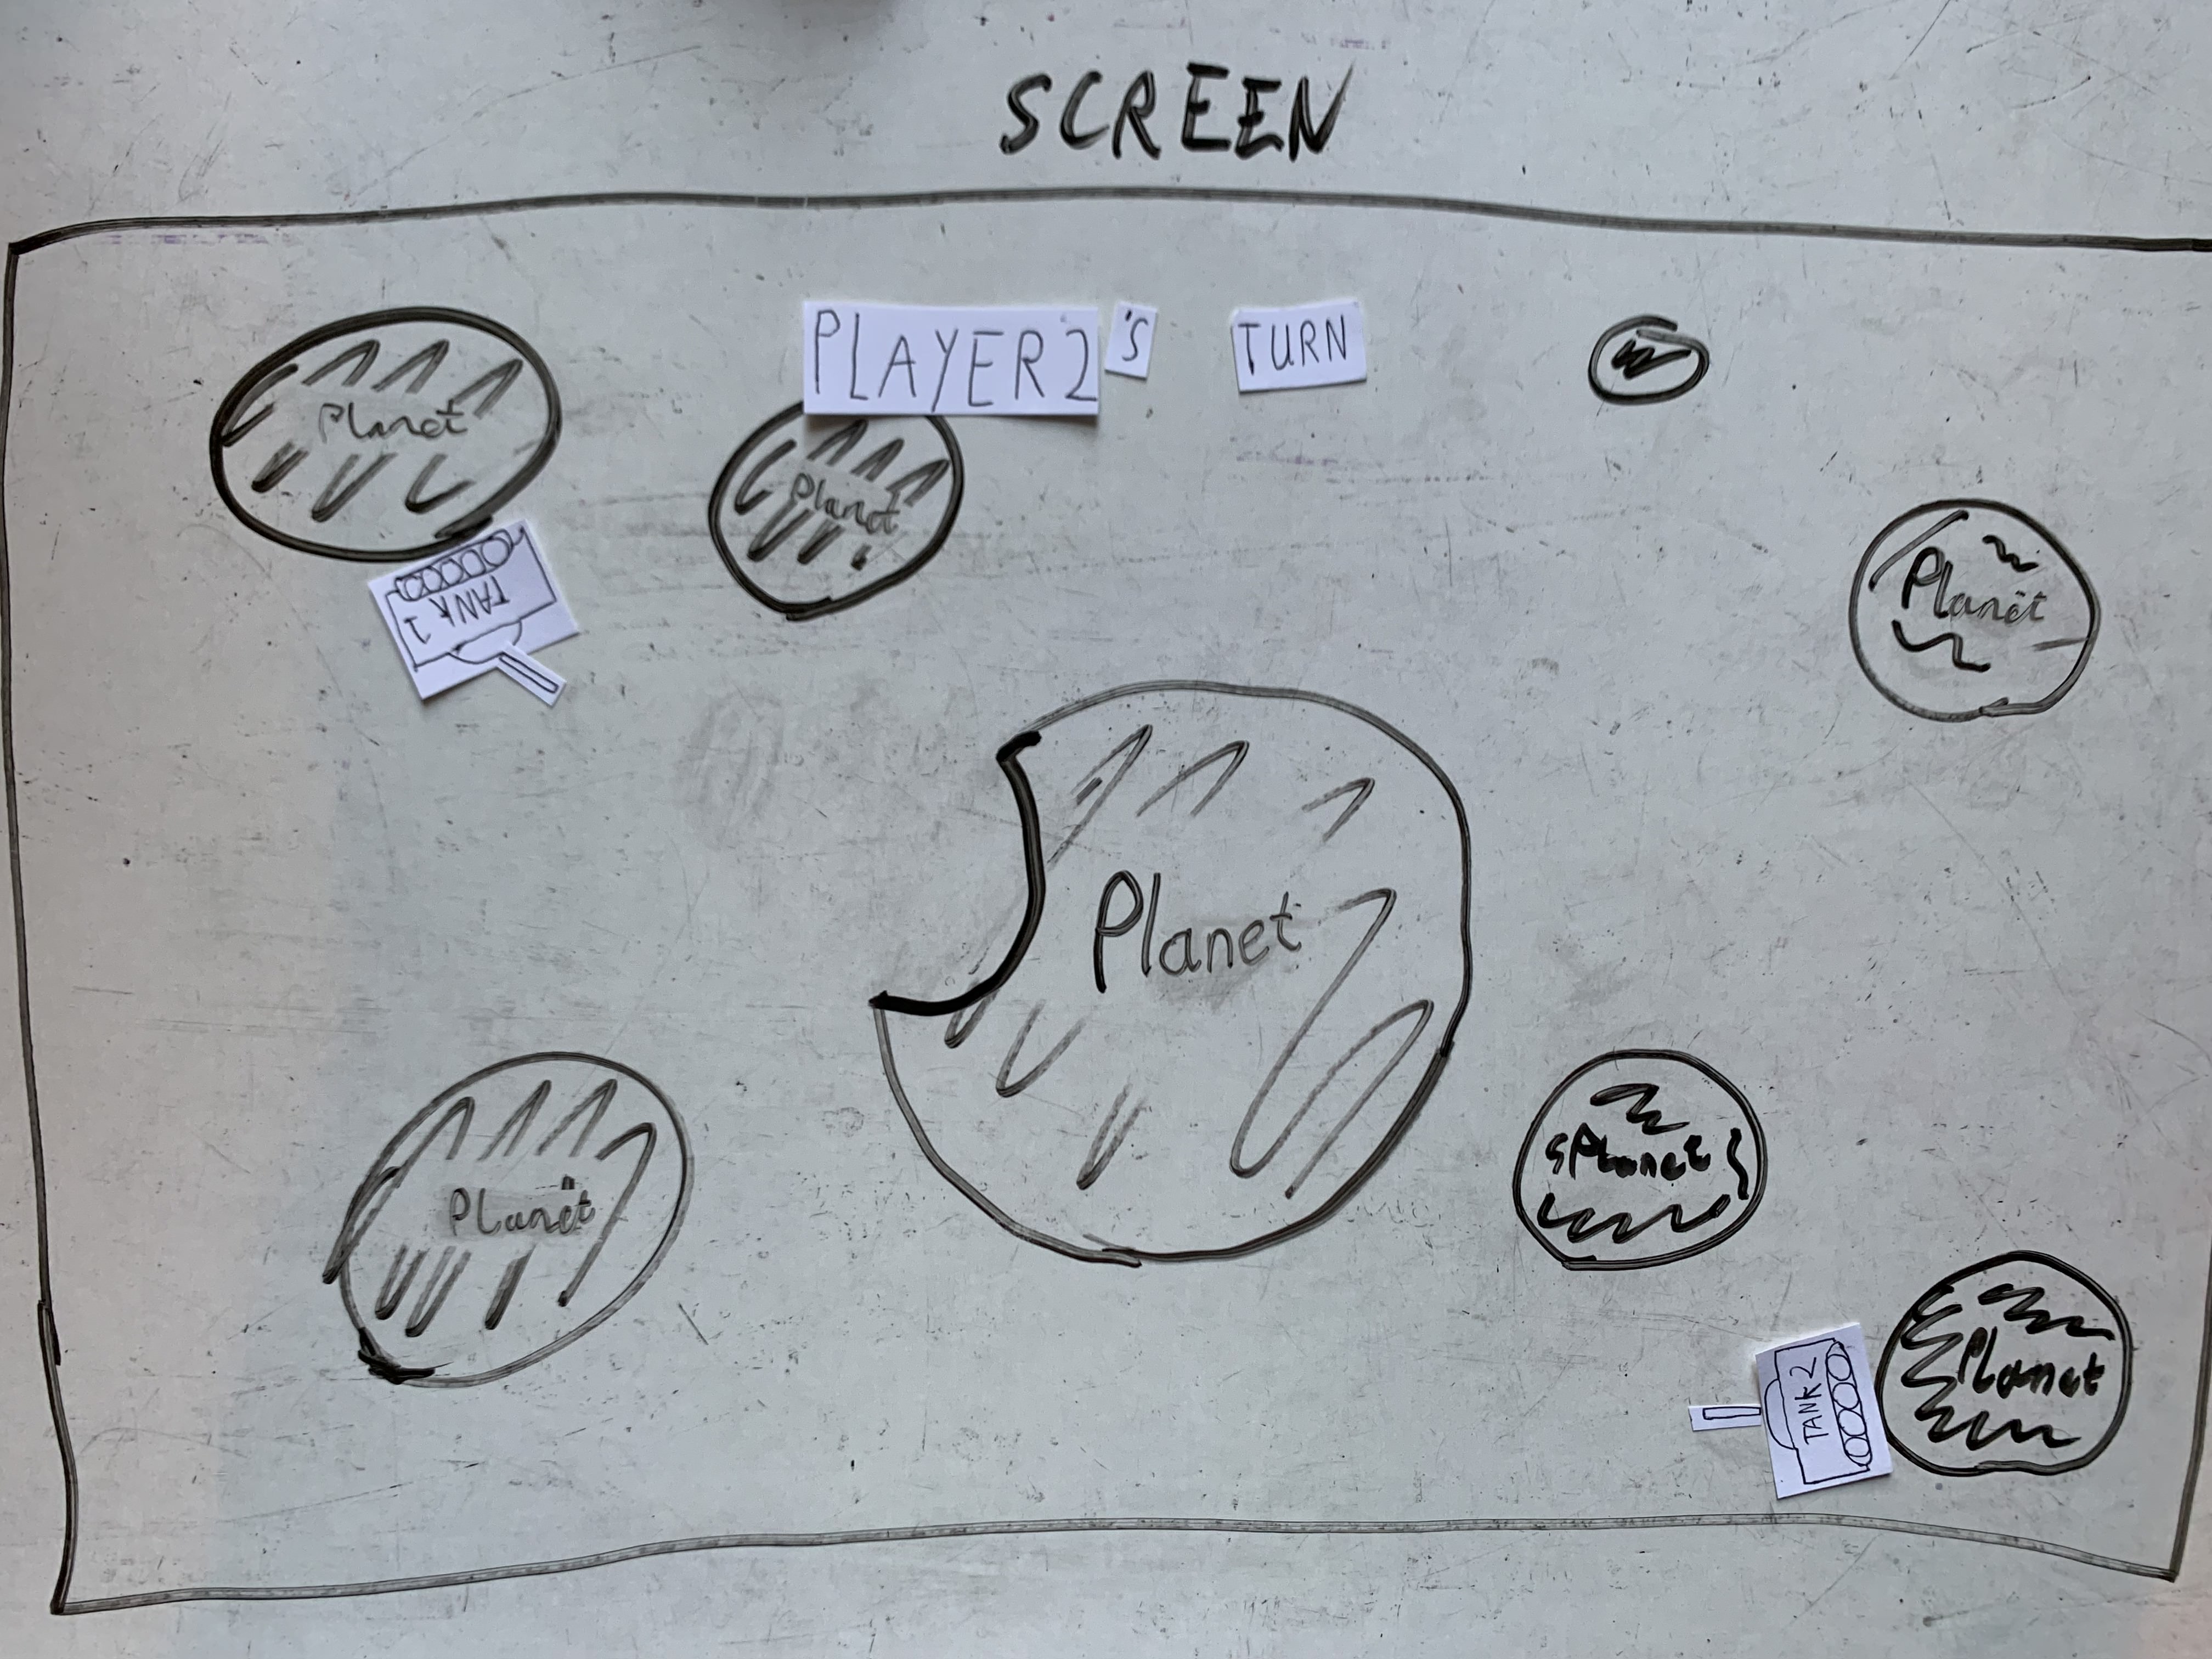 SCREEN
PLAYER2's TURN
Planet
Planet
Planet
TANK 1
Planet
Planet
Planet
Planet
TANK 2